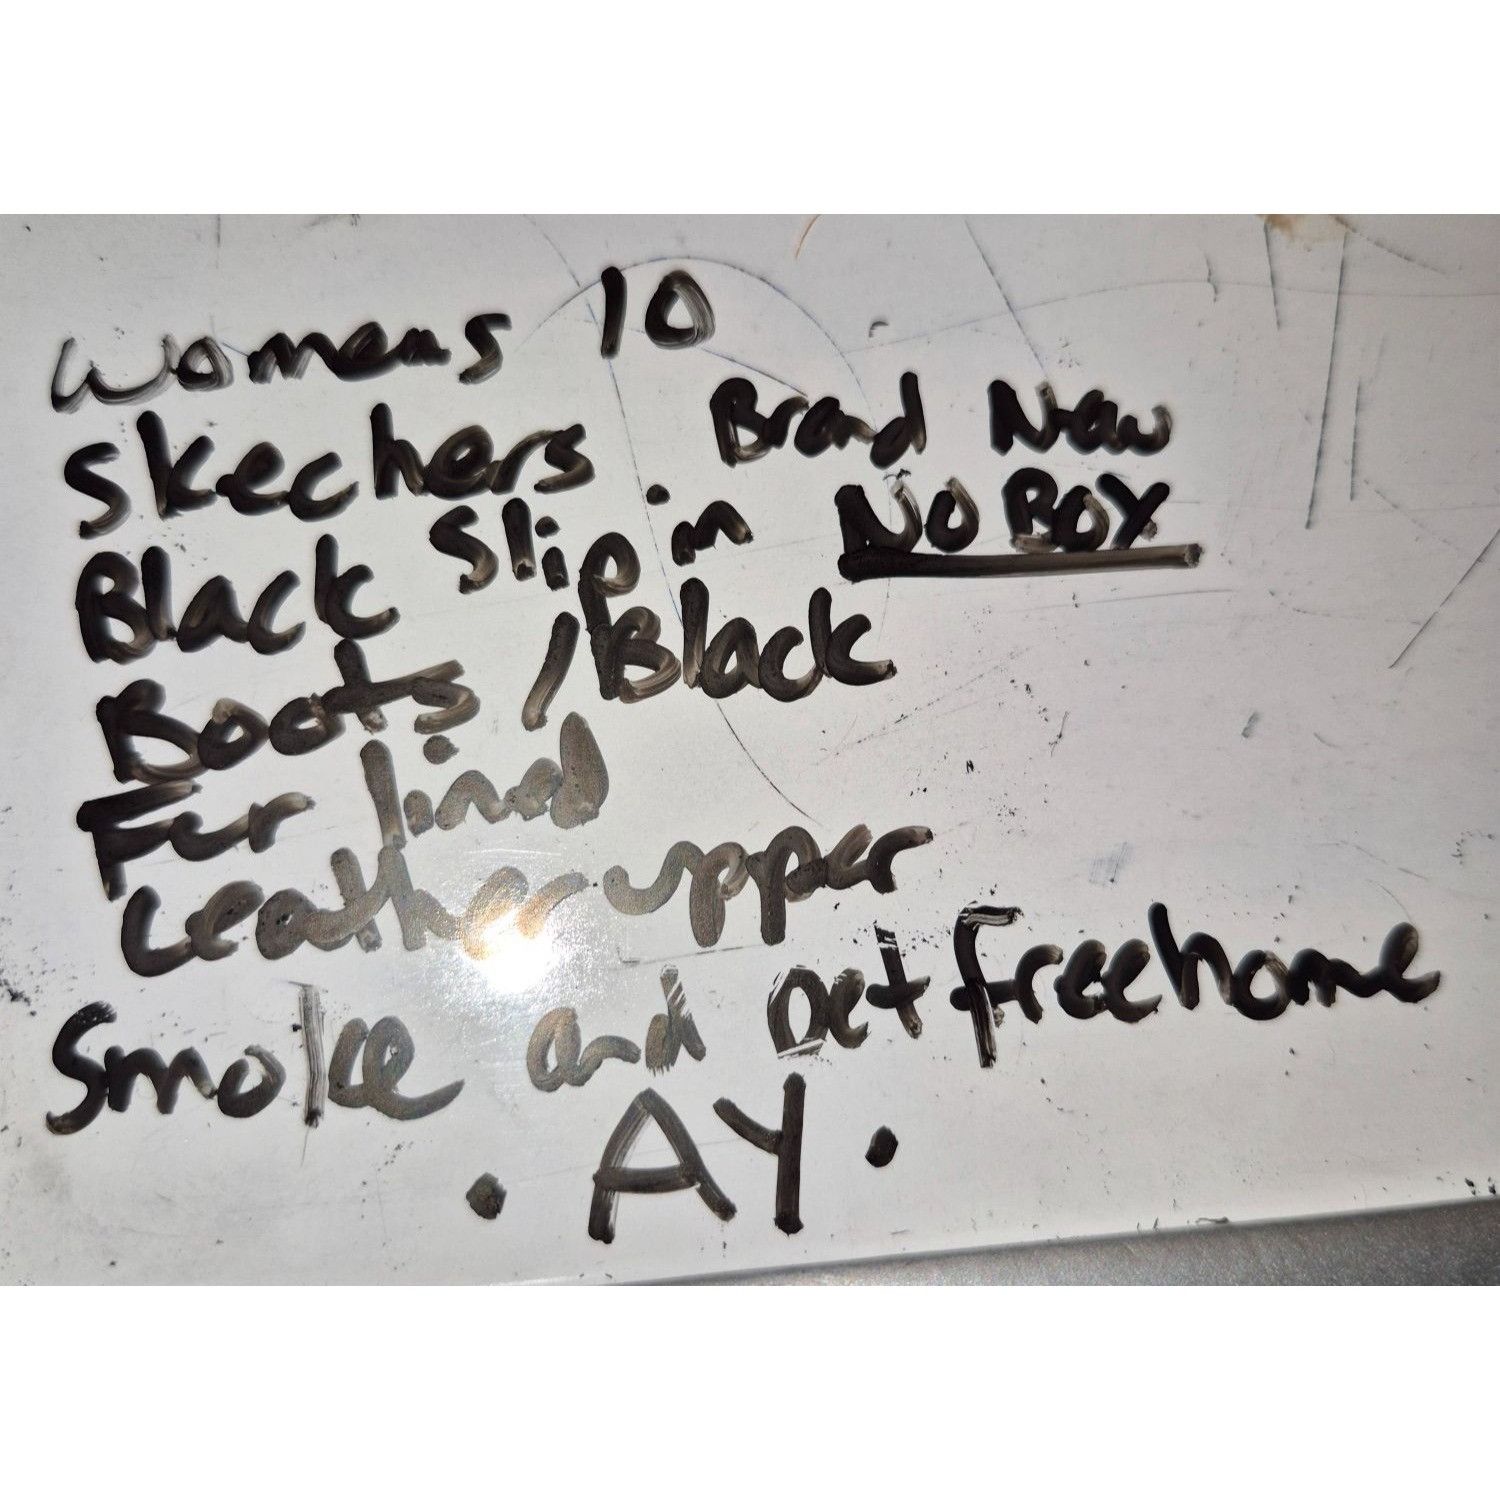 Womens 10
Skechers Brand New
Black Slip in NO BOX
Boots, Black
Fur lined
Leather upper
Smoke and pet free home
. AY .